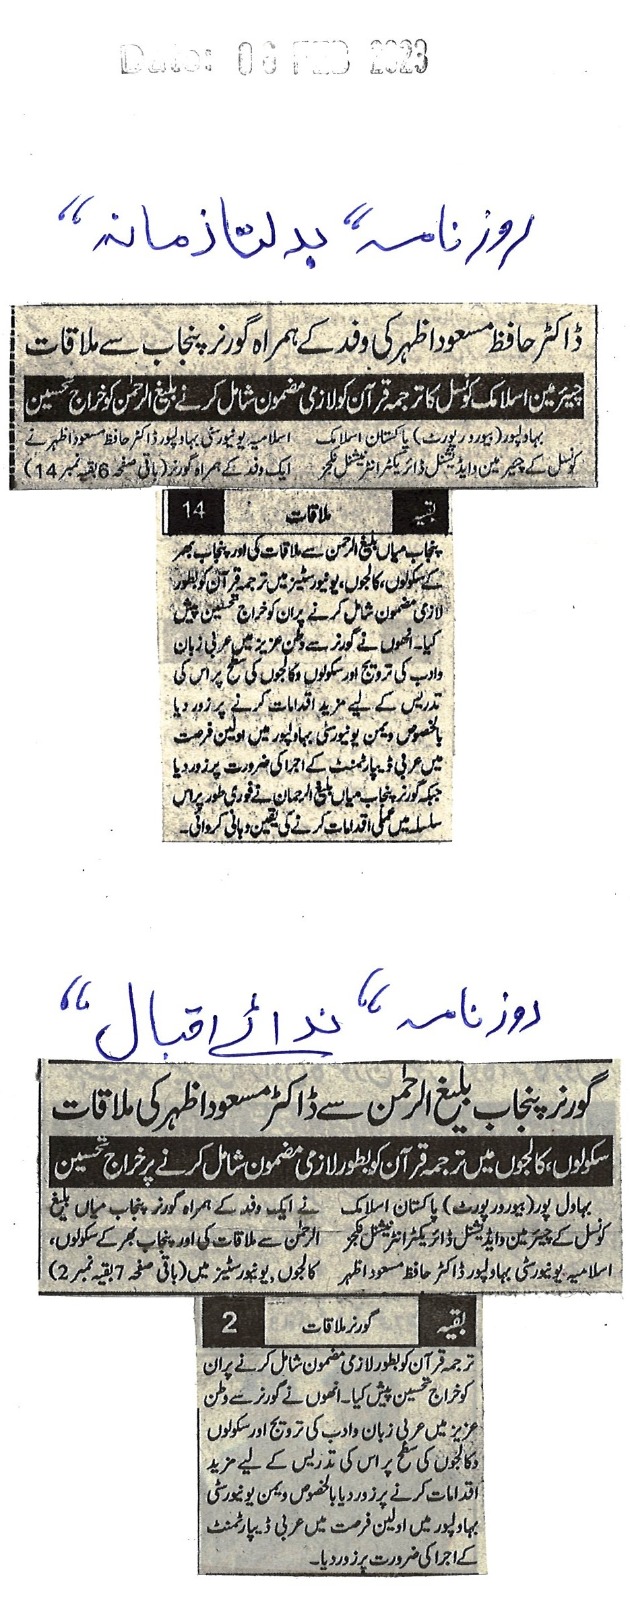 Date: 06 FEB 2023
روزنامہ “بدلتا زمانہ“
ڈاکٹر حافظ مسعود اظہر کی وفد کے ہمراہ گورنر پنجاب سے ملاقات
چیئرمین اسلامک کونسل کا ترجمہ قرآن کو لازمی مضمون شامل کرنے بلیغ الرحمٰن کو خراج تحسین
بہاولپور (بیورو رپورٹ) پاکستان اسلامک
کونسل کے چیئرمین وایڈیشنل ڈائریکٹر انٹرنیشنل لنکجز
اسلامیہ یونیورسٹی بہاولپور ڈاکٹر حافظ مسعود اظہر نے
ایک وفد کے ہمراہ گورنر (باقی صفحہ 6 بقیہ نمبر 14)
بقیہ ملاقات 14
پنجاب میاں بلیغ الرحمن سے ملاقات کی اور پنجاب بھر
کے سکولوں، کالجوں، یونیورسٹیز میں ترجمہ قرآن کو بطور
لازمی مضمون شامل کرنے پر ان کو خراج تحسین پیش
کیا۔ انھوں نے گورنر سے وطن عزیز میں عربی زبان
وادب کی ترویج اور سکولوں وکالجوں کی سطح پر اس کی
تدریس کے لیے مزید اقدامات کرنے پر زور دیا
بالخصوص ویمن یونیورسٹی بہاولپور میں اولین فرصت
میں عربی ڈیپارٹمنٹ کے اجرا کی ضرورت پر زور دیا
جبکہ گورنر پنجاب میاں بلیغ الرحمان نے فوری طور پر اس
سلسلہ میں عملی اقدامات کرنے کی یقین دہانی کروائی۔
روزنامہ “ندائے اقبال“
گورنر پنجاب بلیغ الرحمٰن سے ڈاکٹر مسعود اظہر کی ملاقات
سکولوں، کالجوں میں ترجمہ قرآن کو بطور لازمی مضمون شامل کرنے پر خراج تحسین
بہاول پور (بیورو رپورٹ) پاکستان اسلامک
کونسل کے چیئرمین وایڈیشنل ڈائریکٹر انٹرنیشنل لنکجز
اسلامیہ یونیورسٹی بہاولپور ڈاکٹر حافظ مسعود اظہر
نے ایک وفد کے ہمراہ گورنر پنجاب میاں بلیغ
الرحمٰن سے ملاقات کی اور پنجاب بھر کے سکولوں،
کالجوں، یونیورسٹیز میں (باقی صفحہ 7 بقیہ نمبر 2)
بقیہ گورنر ملاقات 2
ترجمہ قرآن کو بطور لازمی مضمون شامل کرنے پر ان
کو خراج تحسین پیش کیا۔ انھوں نے گورنر سے وطن
عزیز میں عربی زبان وادب کی ترویج اور سکولوں
وکالجوں کی سطح پر اس کی تدریس کے لیے مزید
اقدامات کرنے پر زور دیا بالخصوص ویمن یونیورسٹی
بہاولپور میں اولین فرصت میں عربی ڈیپارٹمنٹ
کے اجرا کی ضرورت پر زور دیا۔